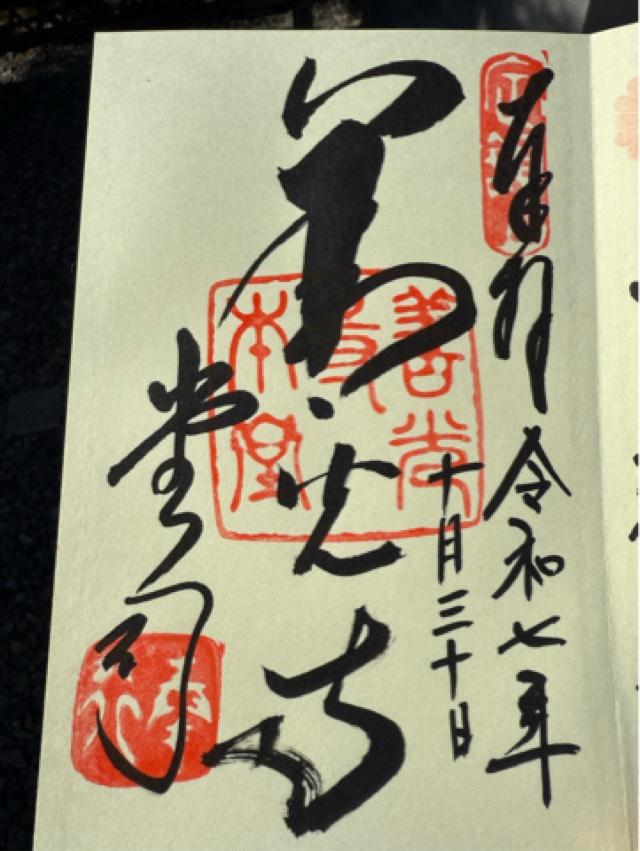 奉拝
令和七年
十月三十日
善光寺
堂司
本堂